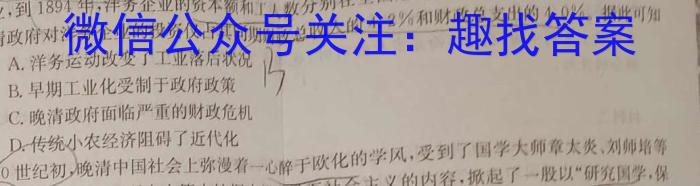 到1894年,洋务企业的资本额和工人数分别
微信公众号关注：趣找答案
清政府对
%和财政总支出的4.0%。据此可知
A. 洋务运动改变了工业落后状况
B
B. 早期工业化受制于政府政策
C. 晚清政府面临严重的财政危机
D. 传统小农经济阻碍了近代化
0世纪初,晚清中国社会上弥漫着一心醉于欧化的学风,受到了国学大师章太炎、刘师培等
主义的内容,掀起了一股以“研究国学,保